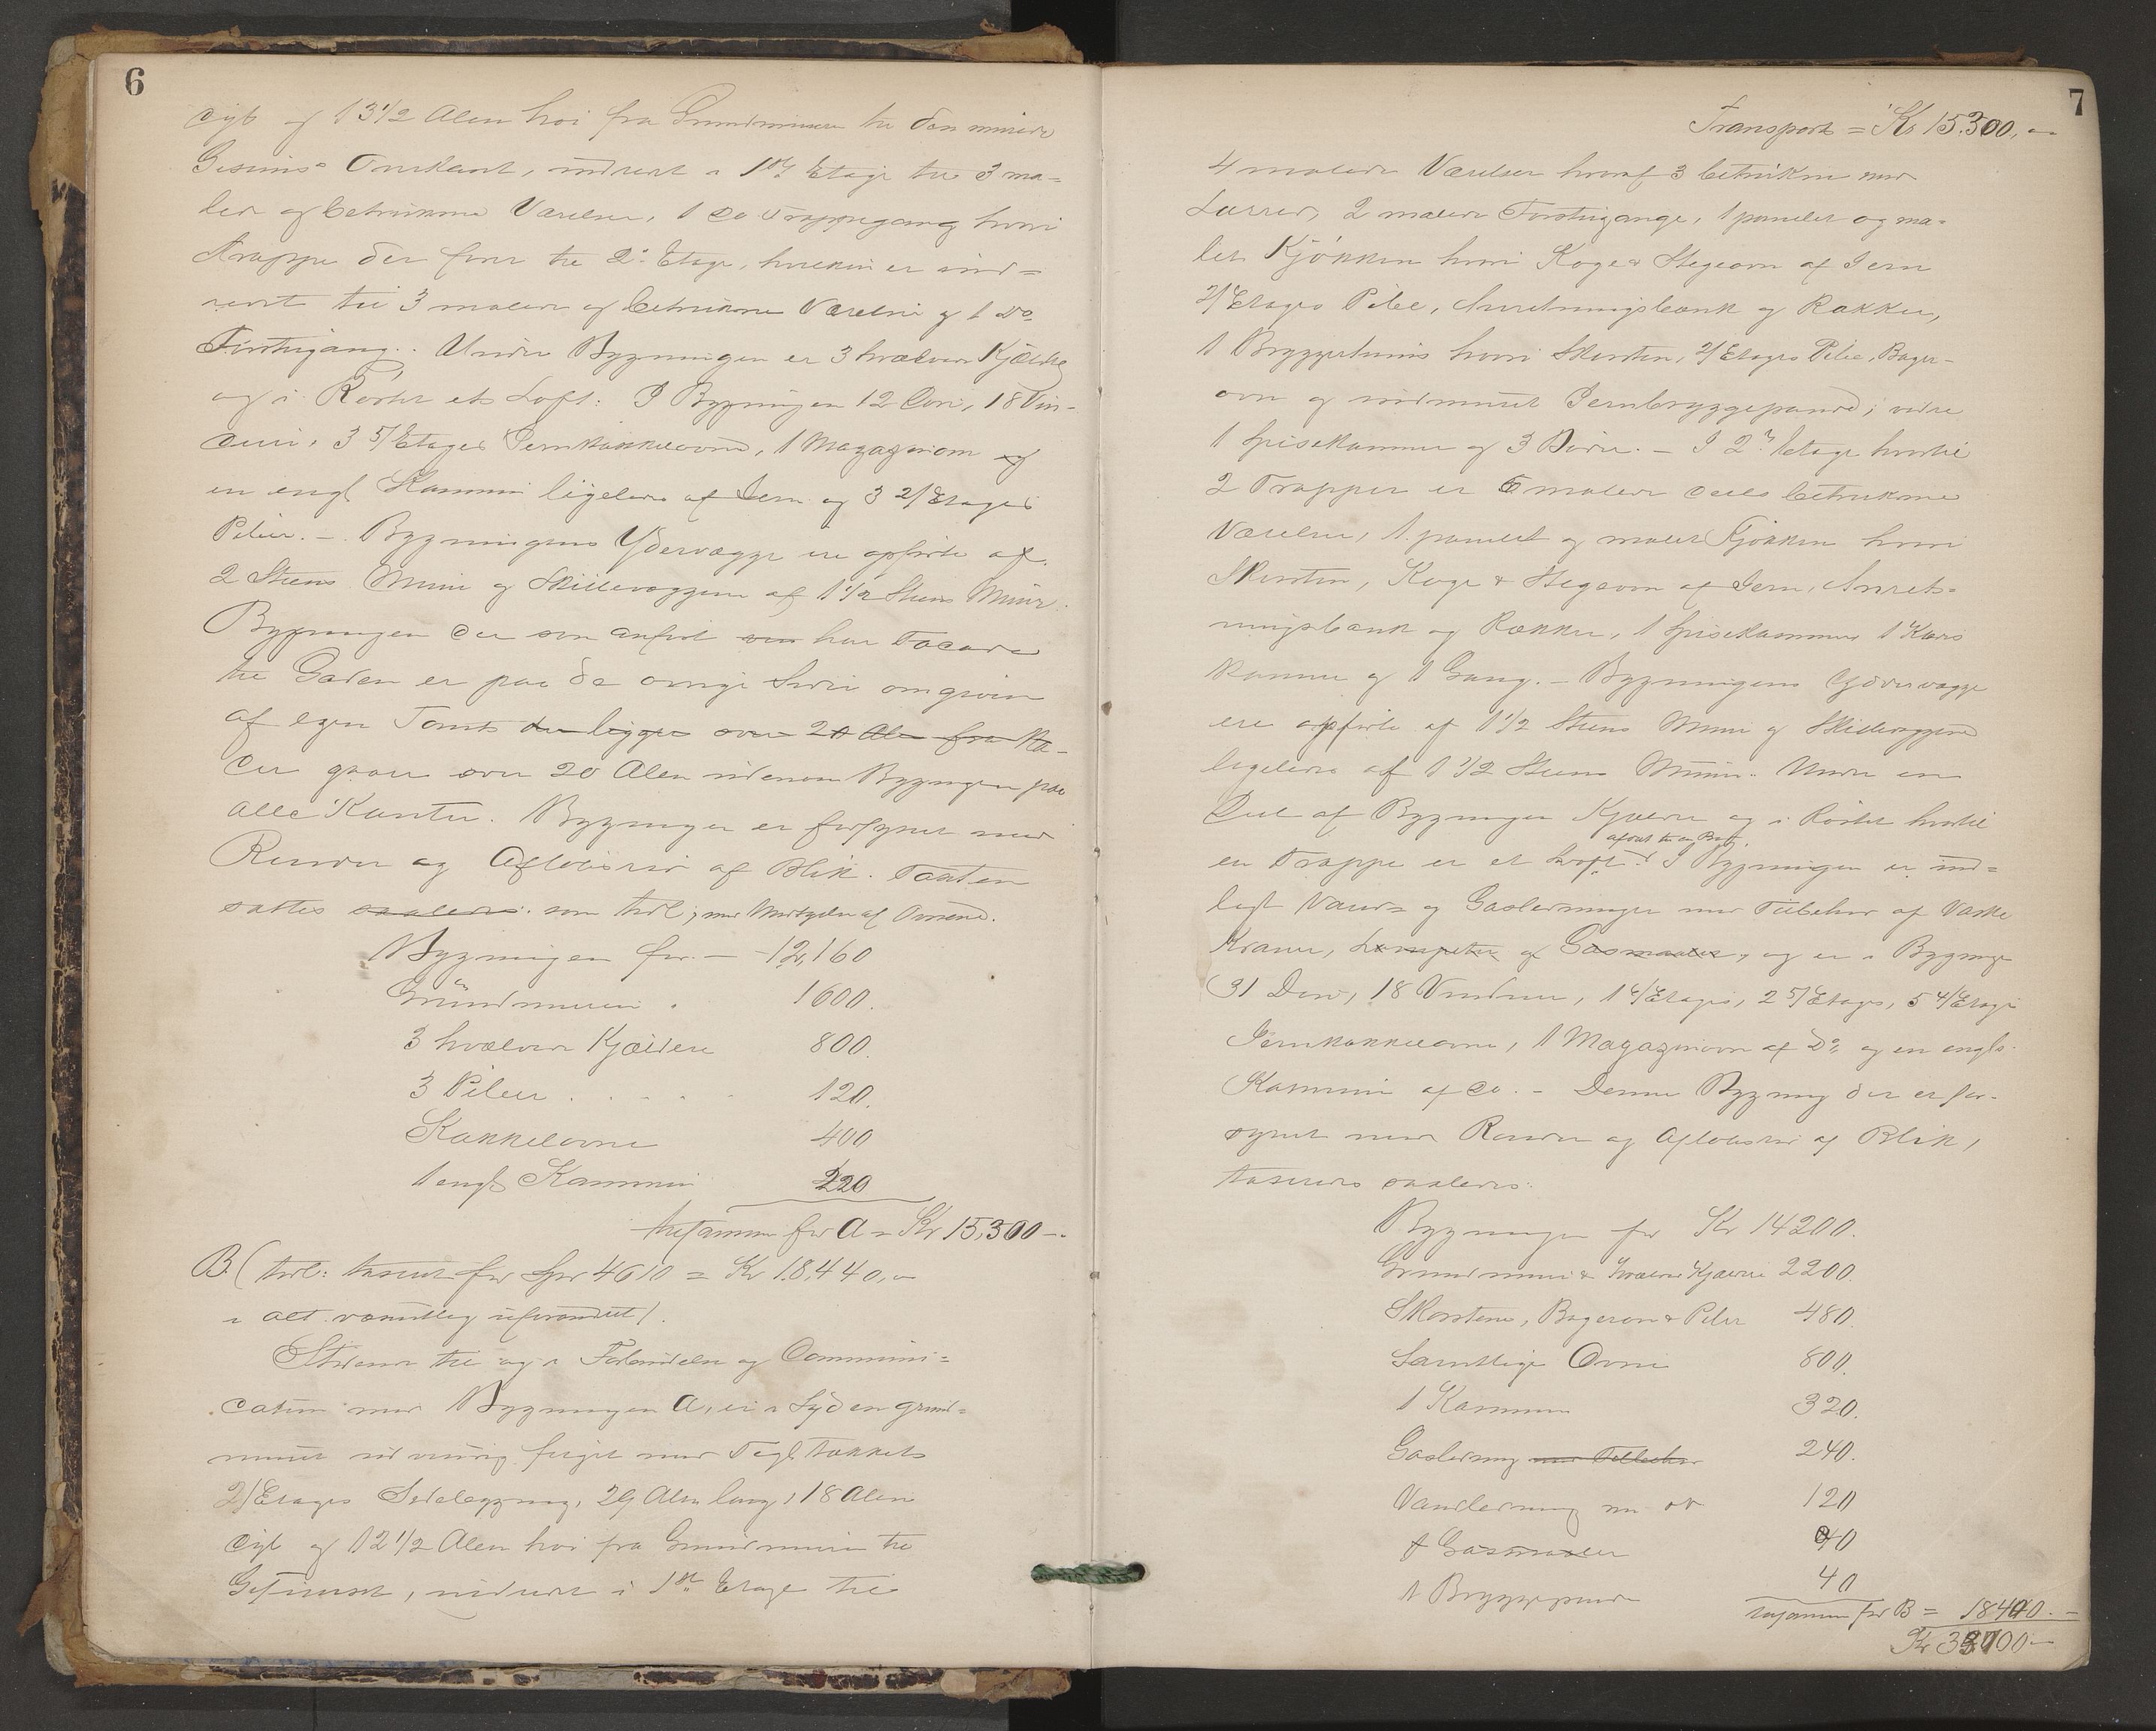 6
dyb og 13 1/2 Alen høi fra Grundmuren til den murede
Gesims Overkant, indredt i 1ste Etage til 3 ma-
lede og betrukne Værelser, 1 do Trappegang hvori
Trappe der fører til 2. Etage, hvilken er ind=
redt til 3 malede og betrukne Værelser og 1 Do
Forstugang. Under Bygningen er 3 hvælvede Kjældre
og i Røstet et Loft. I Bygningen 12 Døre, 18 Vin-
duer, 3 5/Etages Jernkakkelovne, 1 Magazinovn og
en engl Kammin ligeledes af Jern og 3 2/Etages
Piber. – Bygningens Ydervægge ere opførte af
2 Steens Muur og Skillevæggene af 1 1/2 Steens Muur.
Bygningen der som anført har Facade
til Gaden er paa de øvrige Sider omgiven
af egen Tomt der ligger over 20 Alen fra
der gaaer over 20 Alen udenom Bygningen paa
alle Kanter. Bygningen er forsynet med
Render og Afløbsrør af Blik. Taxten
sattes saaledes som tidl; med Undtagelse af Ovnene.
Bygningen for – 12,160
Grundmuren . 1600.
3 hvælvede Kjældere 800.
3 Piber . . . . 120.
Kakkelovne 400
1 engl Kammin 220
tilsammen for A = Kr 15,300 –.
B. (tidl: taxeret for Spd 4610 = Kr 18,440,–
i alt væsentlig uforandret).
Stødende til og i Forbindelse og Communi=
cation med Bygningen A, er i Syd en grund=
muret udvendig med Tegl tækket
2/Etages Sidebygning, 29 Alen lang, 18 Alen
dyb og 12 1/2 Alen høi fra Grundmuren til
Gesimset, indredt i 1ste Etage til
7
Transport = Kr 15.300,–
4 malede Værelser hvoraf 3 betrukne med
Lærred, 2 malede Forstugange, 1 panelet og ma=
let Kjøkken hvori Koge & Stegeovn af Jern
2/Etages Pibe, Anretningsbænk og Rækker,
1 Bryggerhuus hvori Skorsten, 2/Etages Pibe, Bager-
ovn og indmuret Jernbryggepande; videre
1 Spisekammer og 3 Boder. – I 2. Etage hvortil
2 Trapper er 6 malede deels betrukne
Værelser, 1 panelet og malet Kjøkken hvori
Skorsten, Koge & Stegeovn af Jern, Anret=
ningsbænk og Rækker, 1 Spisekammer 1
kammer og 1 Gang. – Bygningens Ydervægge
ere opførte af 1 1/2 Steens Muur og Skillevæggene
ligeledes af 1 1/2 Steens Muur. Under en
Deel af Bygningen Kjælder og i Røstet hvortil
en Trappe er et Loft. I Bygningen er ind=
lagt Vand= og Gasledninger med Tilbehør af Vaske
Kraner, Lampetter og Gasmaaler, og er i Bygningen
31 Døre, 18 Vinduer, 1 6/Etages, 2 5/Etages, 5 4/Etages
Jernkakkelovne, 1 Magazinovn af Do og en engelsk
Kammin af do. – Denne Bygning der er for-
synet med Render og Afløbsrør af Blik,
taxeres saaledes:
Bygningen for Kr 14200.
Grundmuur & hvælvet Kjælder 2200.
Skorstene, Bagerovn & Piber 480.
Samtlige Ovne 800.
1 Kammin 320.
Gasledning med Tilbehør 240.
Vandledning 120
1 Gasmaaler 40
1 Bryggepande 40
tilsammen for B = 18400.–
Kr 33700–